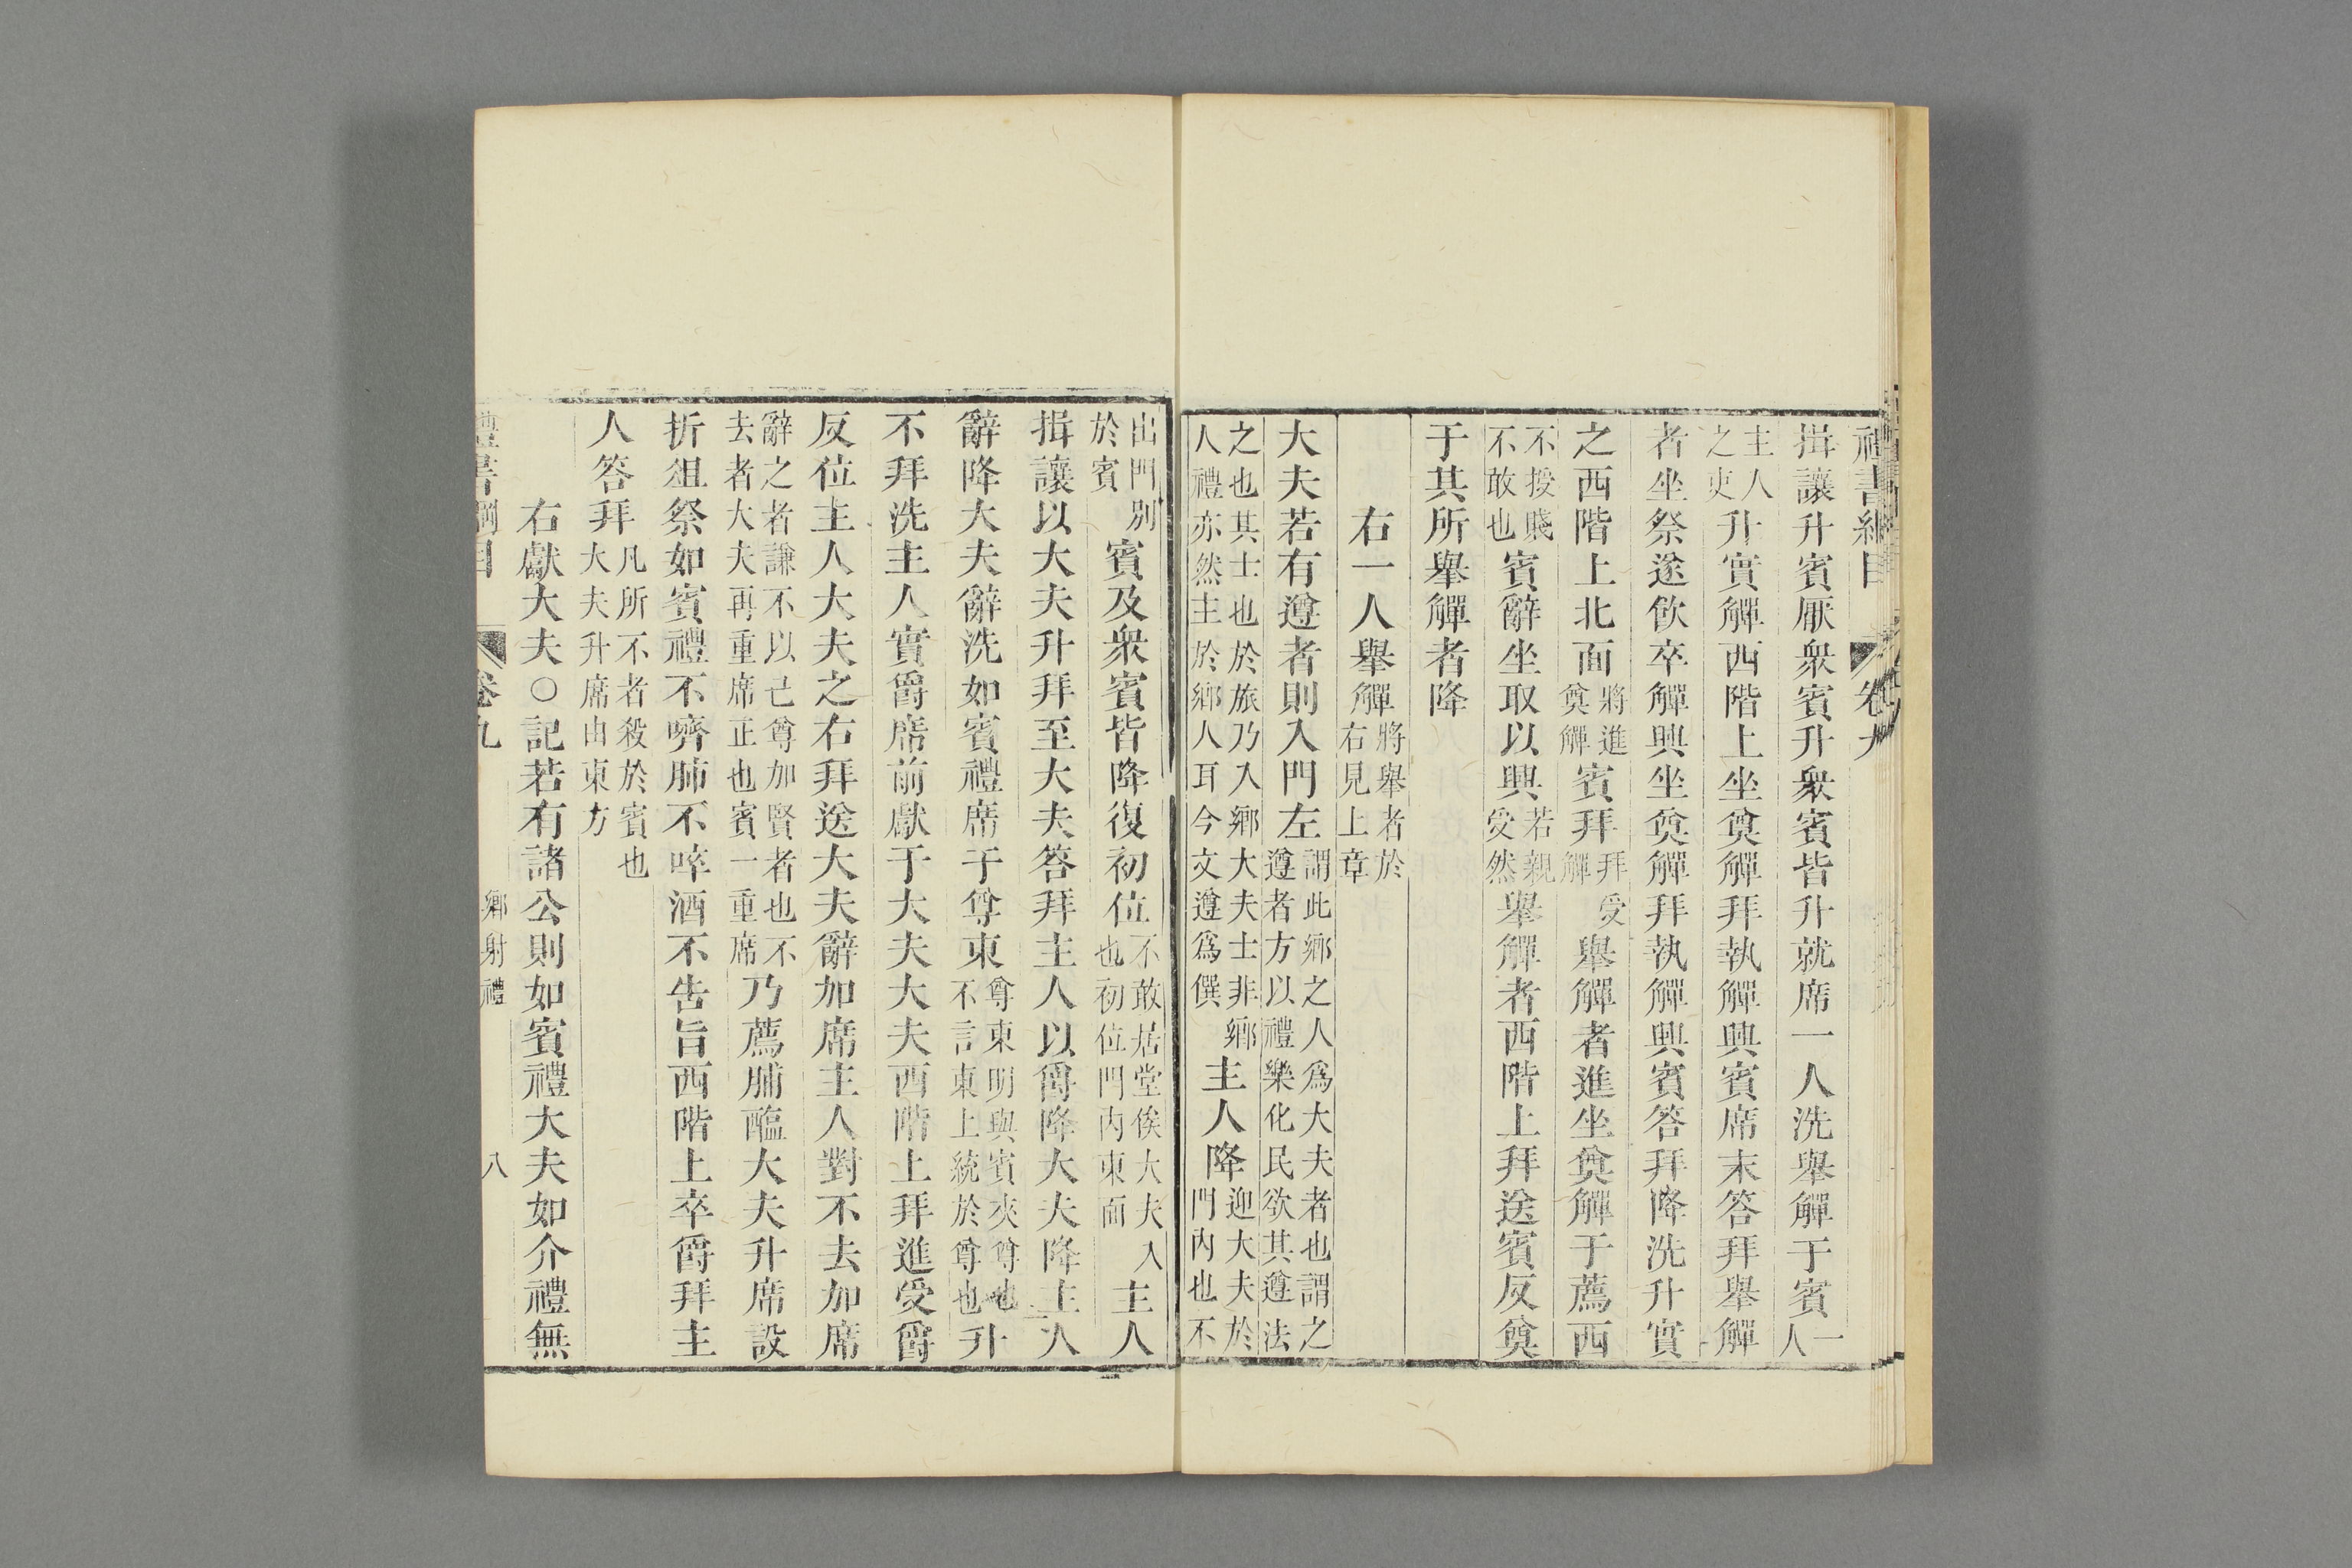 禮書綱目 卷九
揖讓升賓厭衆賓升衆賓皆升就席一人洗舉觶于賓一人
主人之吏升實觶西階上坐奠觶拜執觶興賓席末答拜舉觶
者坐祭遂飲卒觶興坐奠觶拜執觶興賓答拜降洗升實
之西階上北面將進奠觶賓拜拜受觶舉觶者進坐奠觶于薦西
不授賤不敢也賓辭坐取以興若親受然舉觶者西階上拜送賓反奠
于其所舉觶者降
右一人舉觶將舉者於右見上章
大夫若有遵者則入門左謂此鄉之人爲大夫者也謂之遵者方以禮樂化民欲其遵法
之也其士也於旅乃入鄉大夫士非鄉人禮亦然主於鄉人耳今文遵爲僎主人降迎大夫於門內也不
出門別於賓賓及衆賓皆降復初位不敢居堂俟大夫入也初位門內東面主人
揖讓以大夫升拜至大夫答拜主人以爵降大夫降主人
辭降大夫辭洗如賓禮席于尊東尊東明與賓夾尊也不言東上統於尊也升
不拜洗主人實爵席前獻于大夫大夫西階上拜進受爵
反位主人大夫之右拜送大夫辭加席主人對不去加席
辭之者謙不以己尊加賢者也不去者大夫再重席正也賓一重席乃薦脯醢大夫升席設
折俎祭如賓禮不嚌肺不啐酒不告旨西階上卒爵拜主
人答拜凡所不者殺於賓也大夫升席由東方
右獻大夫○記若有諸公則如賓禮大夫如介禮無
禮書綱目 卷九 鄉射禮 八